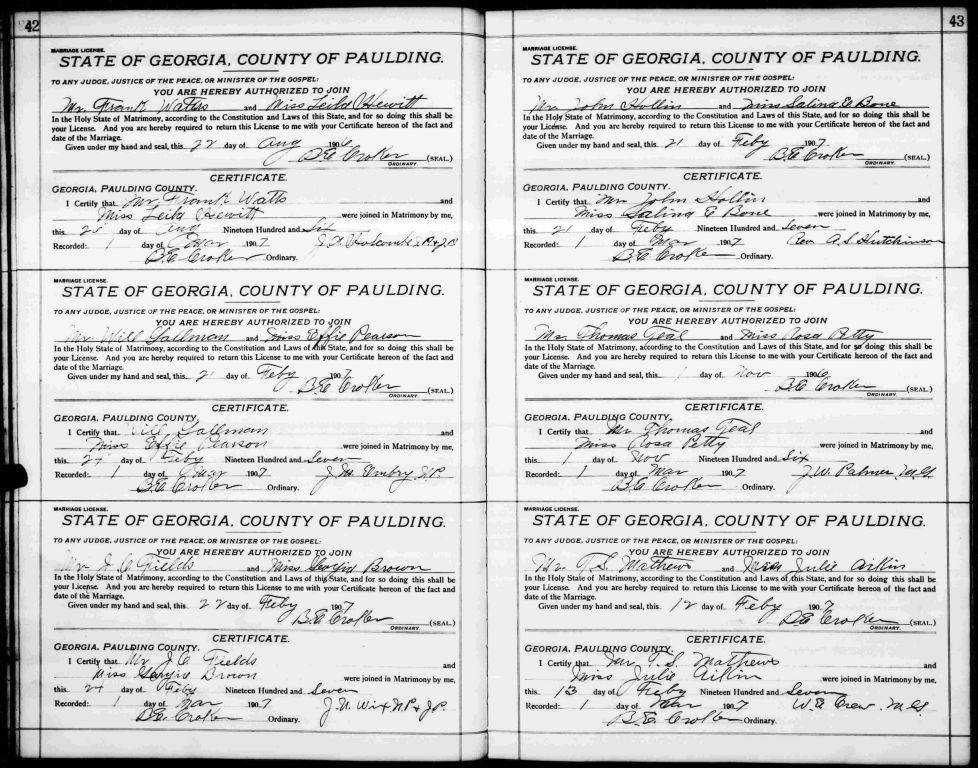 42
MARRIAGE LICENSE.
STATE OF GEORGIA, COUNTY OF PAULDING.
TO ANY JUDGE, JUSTICE OF THE PEACE, OR MINISTER OF THE GOSPEL:
YOU ARE HEREBY AUTHORIZED TO JOIN
Mr. Frank Watts and Miss Leila Hewitt
In the Holy State of Matrimony, according to the Constitution and Laws of this State, and for so doing this shall be
your License. And you are hereby required to return this License to me with your Certificate hereon of the fact and
date of the Marriage.
Given under my hand and seal, this 22 day of Aug 1906
B.E. Croker (SEAL.)
ORDINARY.
CERTIFICATE.
GEORGIA, PAULDING COUNTY.
I Certify that Mr. Frank Watts and
Miss Leila Hewitt were joined in Matrimony by me,
this day of Aug Nineteen Hundred and Six
Recorded: 1 day of Mar 1907
B.E. Croker Ordinary.
MARRIAGE LICENSE.
STATE OF GEORGIA, COUNTY OF PAULDING.
TO ANY JUDGE, JUSTICE OF THE PEACE, OR MINISTER OF THE GOSPEL:
YOU ARE HEREBY AUTHORIZED TO JOIN
Mr. Will Gallman and Miss Effie Pearson
In the Holy State of Matrimony, according to the Constitution and Laws of this State, and for so doing this shall be
your License. And you are hereby required to return this License to me with your Certificate hereon of the fact and
date of the Marriage.
Given under my hand and seal, this 21 day of Feby 1907
B.E. Croker (SEAL.)
ORDINARY.
CERTIFICATE.
GEORGIA, PAULDING COUNTY.
I Certify that Will Gallman and
Miss Effie Pearson were joined in Matrimony by me,
this day of Feby Nineteen Hundred and Seven
Recorded: 1 day of Mar 1907 J.M. Embry N.P.
B.E. Croker Ordinary.
MARRIAGE LICENSE.
STATE OF GEORGIA, COUNTY OF PAULDING.
TO ANY JUDGE, JUSTICE OF THE PEACE, OR MINISTER OF THE GOSPEL:
YOU ARE HEREBY AUTHORIZED TO JOIN
Mr J.C. Fields and Miss Brown
In the Holy State of Matrimony, according to the Constitution and Laws of this State, and for so doing this shall be
your License. And you are hereby required to return this License to me with your Certificate hereon of the fact and
date of the Marriage.
Given under my hand and seal, this 22 day of Feby 1907
B.E. Croker (SEAL.)
ORDINARY.
CERTIFICATE.
GEORGIA, PAULDING COUNTY.
I Certify that Mr J.C. Fields and
Miss Brown were joined in Matrimony by me,
this 24 day of Feby Nineteen Hundred and Seven
Recorded: 1 day of Mar 1907 N.P. & J.P.
B.E. Croker Ordinary.
43
MARRIAGE LICENSE.
STATE OF GEORGIA, COUNTY OF PAULDING.
TO ANY JUDGE, JUSTICE OF THE PEACE, OR MINISTER OF THE GOSPEL:
YOU ARE HEREBY AUTHORIZED TO JOIN
Mr. John Hollin and Miss Salina E Bone
In the Holy State of Matrimony, according to the Constitution and Laws of this State, and for so doing this shall be
your License. And you are hereby required to return this License to me with your Certificate hereon of the fact and
date of the Marriage.
Given under my hand and seal, this 21 day of Feby 1907
B.E. Croker (SEAL.)
ORDINARY.
CERTIFICATE.
GEORGIA, PAULDING COUNTY.
I Certify that Mr John Hollin and
Miss Salina E Bone were joined in Matrimony by me,
this 21 day of Feby Nineteen Hundred and Seven
Recorded: 1 day of Mar 1907 Rev. A.S. Hutchinson
B.E. Croker Ordinary.
MARRIAGE LICENSE.
STATE OF GEORGIA, COUNTY OF PAULDING.
TO ANY JUDGE, JUSTICE OF THE PEACE, OR MINISTER OF THE GOSPEL:
YOU ARE HEREBY AUTHORIZED TO JOIN
Mr. Thomas Teal and Miss Rosa Petty
In the Holy State of Matrimony, according to the Constitution and Laws of this State, and for so doing this shall be
your License. And you are hereby required to return this License to me with your Certificate hereon of the fact and
date of the Marriage.
Given under my hand and seal, this 1 day of Nov 1906
B.E. Croker (SEAL.)
ORDINARY.
CERTIFICATE.
GEORGIA, PAULDING COUNTY.
I Certify that Mr Thomas Teal and
Miss Rosa Petty were joined in Matrimony by me,
this 1 day of Nov Nineteen Hundred and Six
Recorded: 1 day of Mar 1907 J.W. Palmer M.G.
B.E. Croker Ordinary.
MARRIAGE LICENSE.
STATE OF GEORGIA, COUNTY OF PAULDING.
TO ANY JUDGE, JUSTICE OF THE PEACE, OR MINISTER OF THE GOSPEL:
YOU ARE HEREBY AUTHORIZED TO JOIN
Mr. T.S. Mathews and Miss Julie Aikin
In the Holy State of Matrimony, according to the Constitution and Laws of this State, and for so doing this shall be
your License. And you are hereby required to return this License to me with your Certificate hereon of the fact and
date of the Marriage.
Given under my hand and seal, this 12 day of Feby 1907
B.E. Croker (SEAL.)
ORDINARY.
CERTIFICATE.
GEORGIA, PAULDING COUNTY.
I Certify that Mr T.S. Mathews and
Miss Julie Aikin were joined in Matrimony by me,
this 13 day of Feby Nineteen Hundred and Seven
Recorded: 1 day of Mar 1907 W.E. Crew M.G.
B.E. Croker Ordinary.